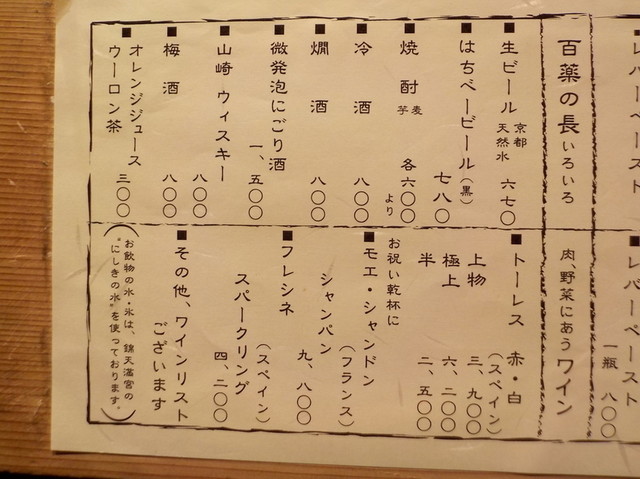 レバーペースト
百薬の長 いろいろ
■生ビール 京都 天然水 六七〇
■はちべービール(黒) 七八〇
■焼酎 麦 芋 各六〇〇より
■冷酒 八〇〇
■燗酒 八〇〇
■微発泡にごり酒 一、五〇〇
■山崎 ウィスキー 八〇〇
■梅酒 八〇〇
■オレンジジュース
ウーロン茶 三〇〇
■レバーペースト
一瓶 八〇〇
肉、野菜にあう ワイン
■トーレス 赤・白
(スペイン)
上物 三、九〇〇
極上 六、二〇〇
半 二、五〇〇
お祝い乾杯に
■モエ・シャンドン
(フランス)
シャンパン 九、八〇〇
■フレシネ
(スペイン)
スパークリング 四、二〇〇
■その他、ワインリスト
ございます
(お飲物の水・氷は、錦天満宮の
"にしきの水"を使っております。)